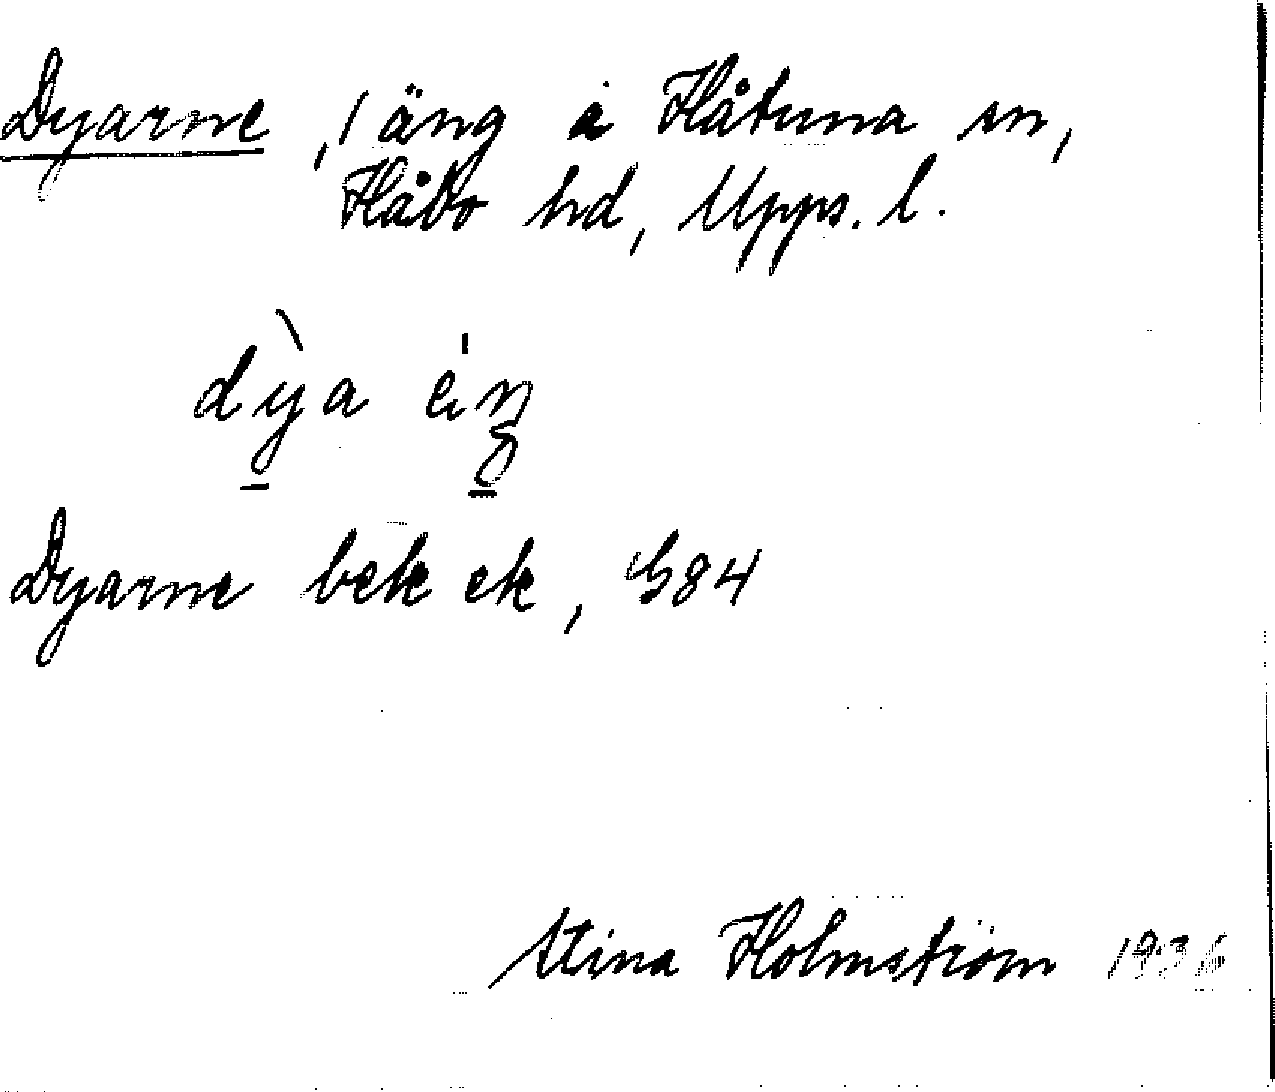 Dyarne, 1 äng i Håtuna sn,
Håbo hd, Upps. l.
dỳa éŋ
Dyarne bek ek, G84
Stina Holmström 1936